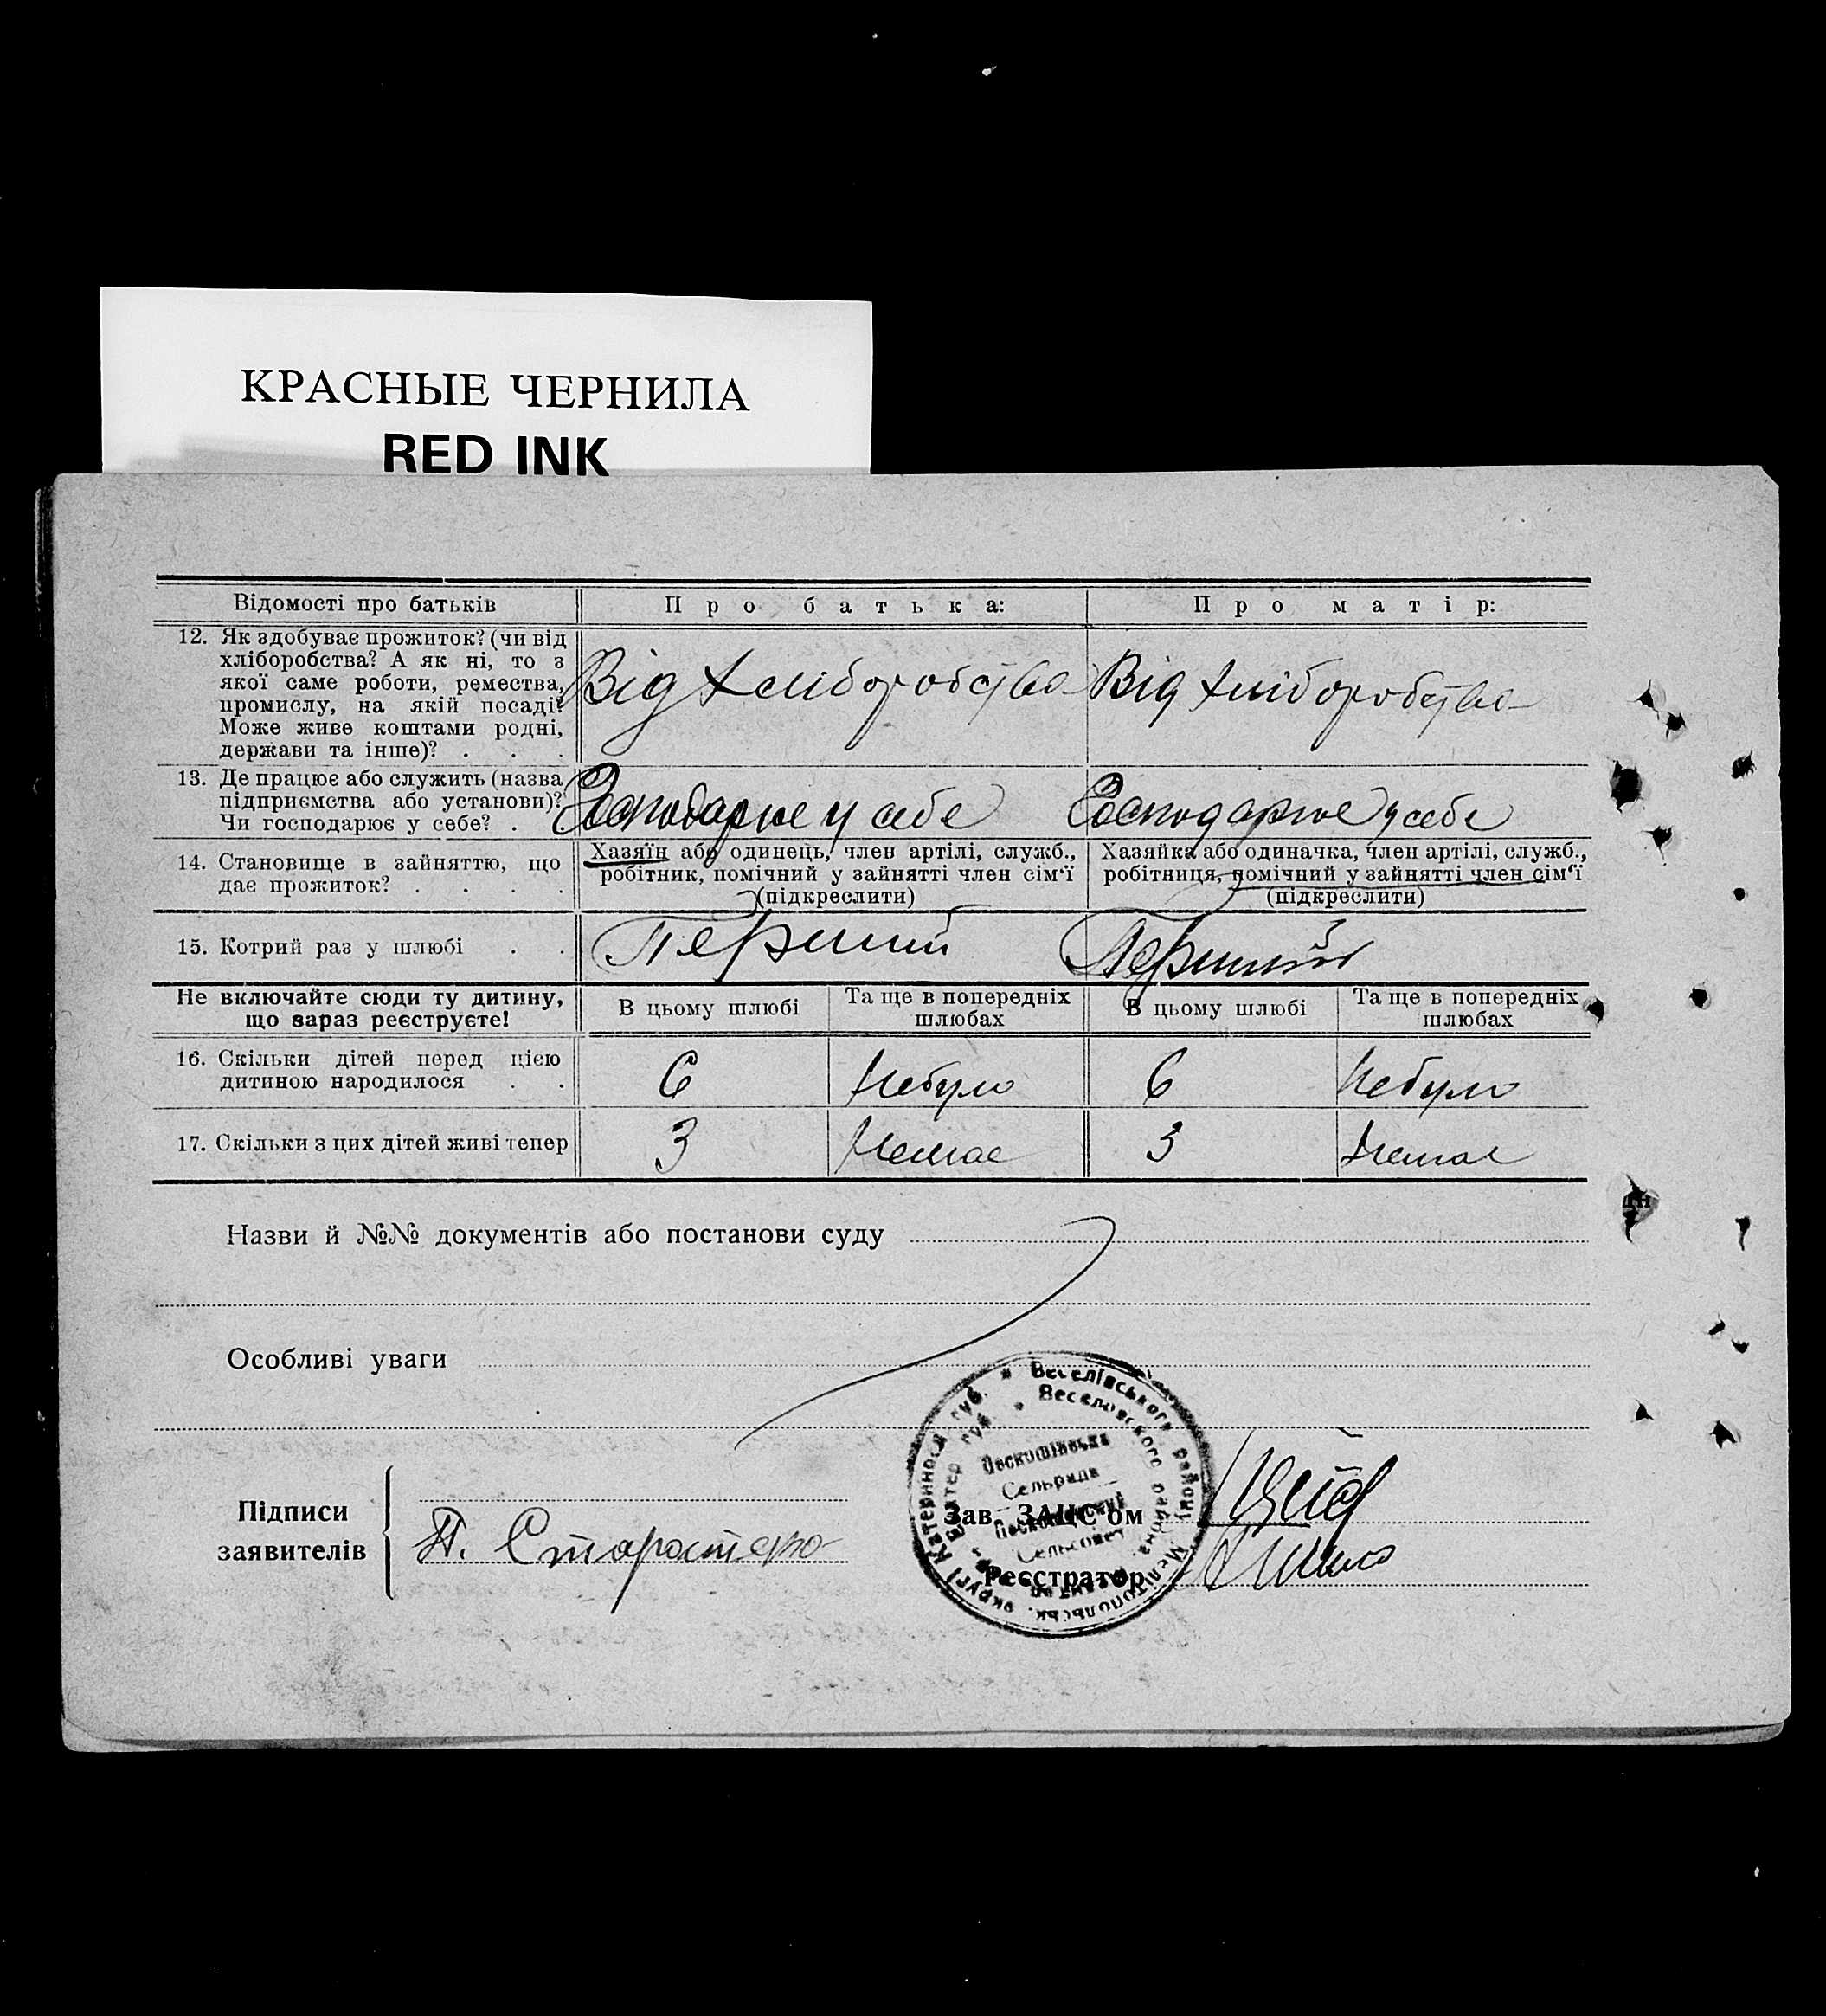 КРАСНЫЕ ЧЕРНИЛА
RED INK
Відомості про батьків
Про батька:
Про матір:
12. Як здобуває прожиток? (чи від
хліборобства? А як ні, то з
якої саме роботи, ремества,
промислу, на якій посаді?
Може живе коштами родні,
держави та інше)? . . .
Від хліборобства
Від хліборобства
13. Де працює або служить (назва
підприємства або установи)?
Чи господарює у себе? .
Господарює у себе
Господарює у себе
14. Становище в зайняттю, що
дає прожиток? . . . .
Хазяїн або одинець, член артілі, служб.,
робітник, помічний у зайнятті член сім'ї
(підкреслити)
Хазяйка або одиначка, член артілі, служб.,
робітниця, помічний у зайнятті член сім'ї
(підкреслити)
15. Котрий раз у шлюбі . .
Перший
Перший
Не включайте сюди ту дитину,
що зараз реєструєте!
В цьому шлюбі
Та ще в попередніх
шлюбах
В цьому шлюбі
Та ще в попередніх
шлюбах
16. Скільки дітей перед цією
дитиною народилося . .
6
Небуло
6
Небуло
17. Скільки з цих дітей живі тепер
3
Немає
3
Немає
Назви й №№ документів або постанови суду
Особливі уваги
Підписи
заявителів
П. Старостенко
Зав. ЗАЦС'ом
Реєстратор
Катеринос. губ. * Веселівського району Мелітопольськ. округі
Катер. губ. * Веселовского района
Сельрада
Сельсовет